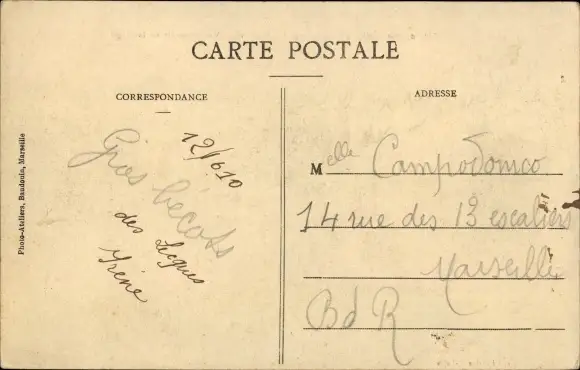 CARTE POSTALE
CORRESPONDANCE
ADRESSE
Photo-Ateliers, Baudouin, Marseille
12/6 10
Gros bécots
des Lecques
Yrène
Melle Campodonico
14 rue des 13 escaliers
Marseille
Bd R